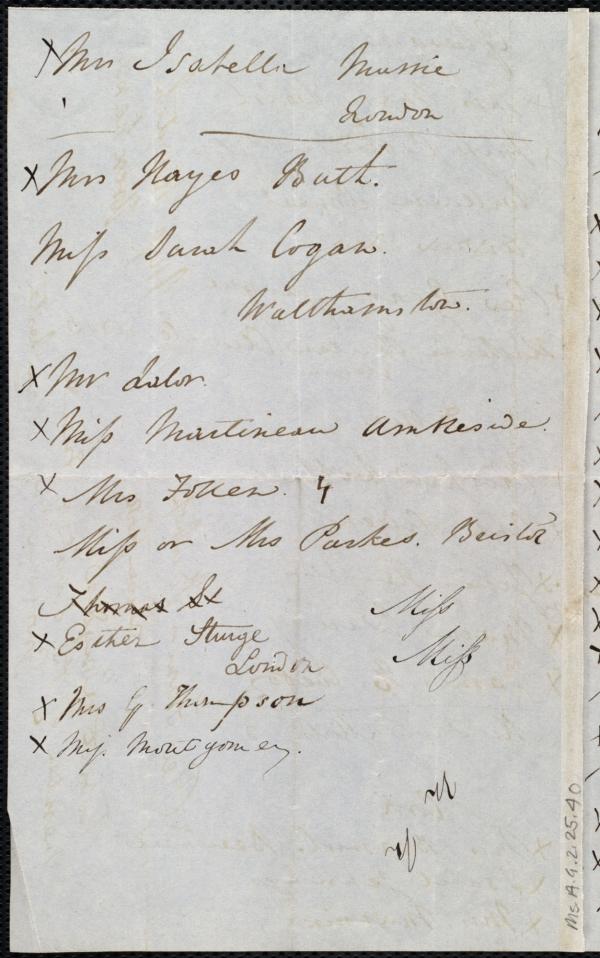 x Mrs Isabella Massie
London
x Mrs Hayes Bath.
Miss Sarah Cogan.
Walthamstow.
x Mr Lalor.
x Miss Martineau Ambleside.
x Mrs Follen. 4
Miss or Mrs Parkes. Bristol
Thomas St Miss
x Esther Sturge Miss
London
x Mrs G Thompson
x Miss Montgomery.
Ms.A.9.2.25.40